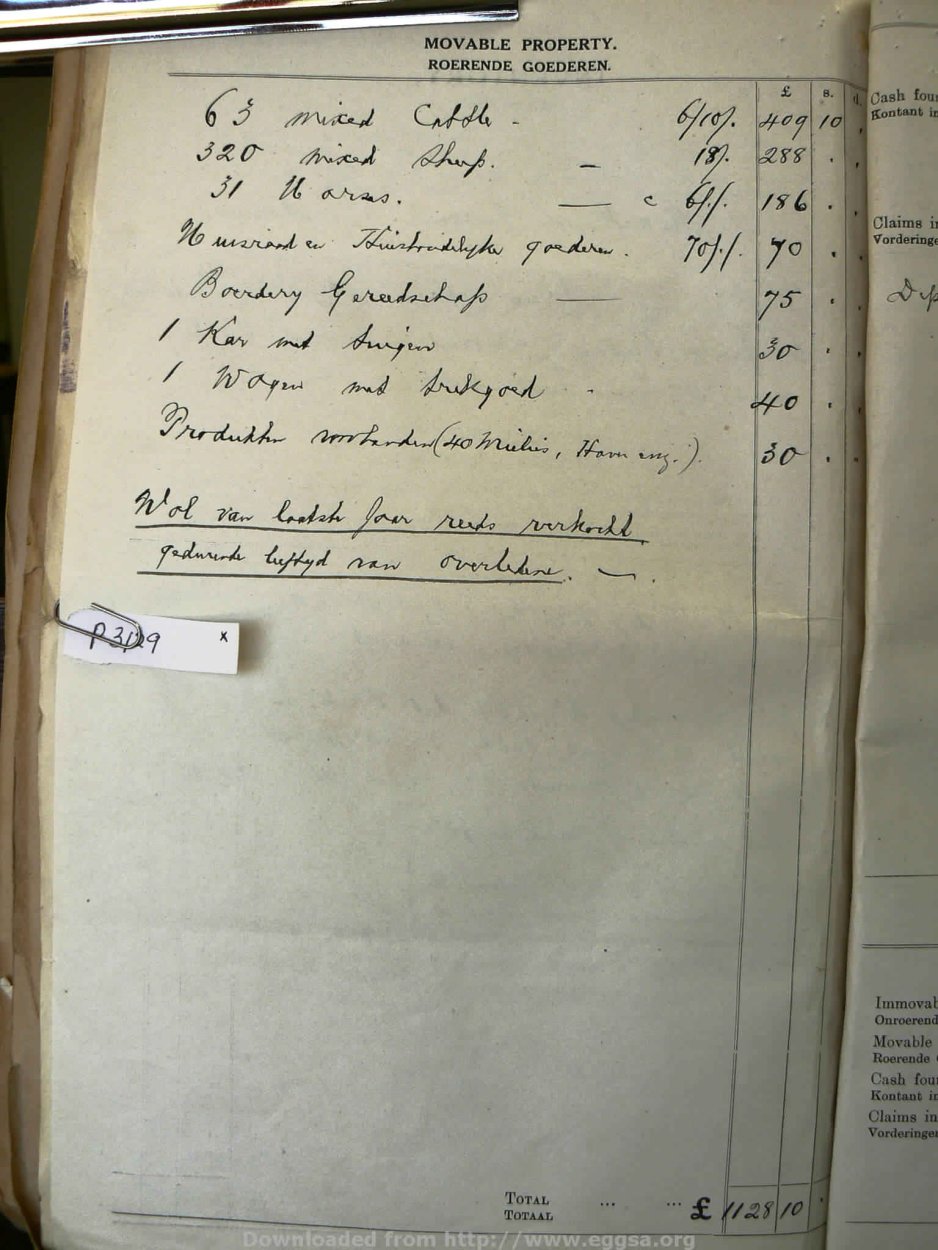 MOVABLE PROPERTY.
ROERENDE GOEDEREN.
£ s. d.
63 mixed Cattle - 6/10/. 409 10
320 mixed sheep. — 18/. 288 . .
31 Horses. — c 6/./. 186 . .
Huisraad en Huishoudelyke goederen. 70/./. 70 . .
Boerdery Gereedschap — 75 . .
1 Kar met tuigen 30 . .
1 Wagen met trekgoed - 40 . .
Produkten voorhanden (40 Mielies, Haver enz.). 30 . .
Wol van laatste Jaar reeds verkocht
gedurende leeftyd van overledene. —.
P3/29 x
TOTAL ... ...
TOTAAL £ 1128 10 .
Cash
Kontant
Claims
Vorderinge
Immovab
Onroerend
Movable
Roerende
Cash
Kontant
Claims in
Vorderingen
Downloaded from http://www.eggsa.org